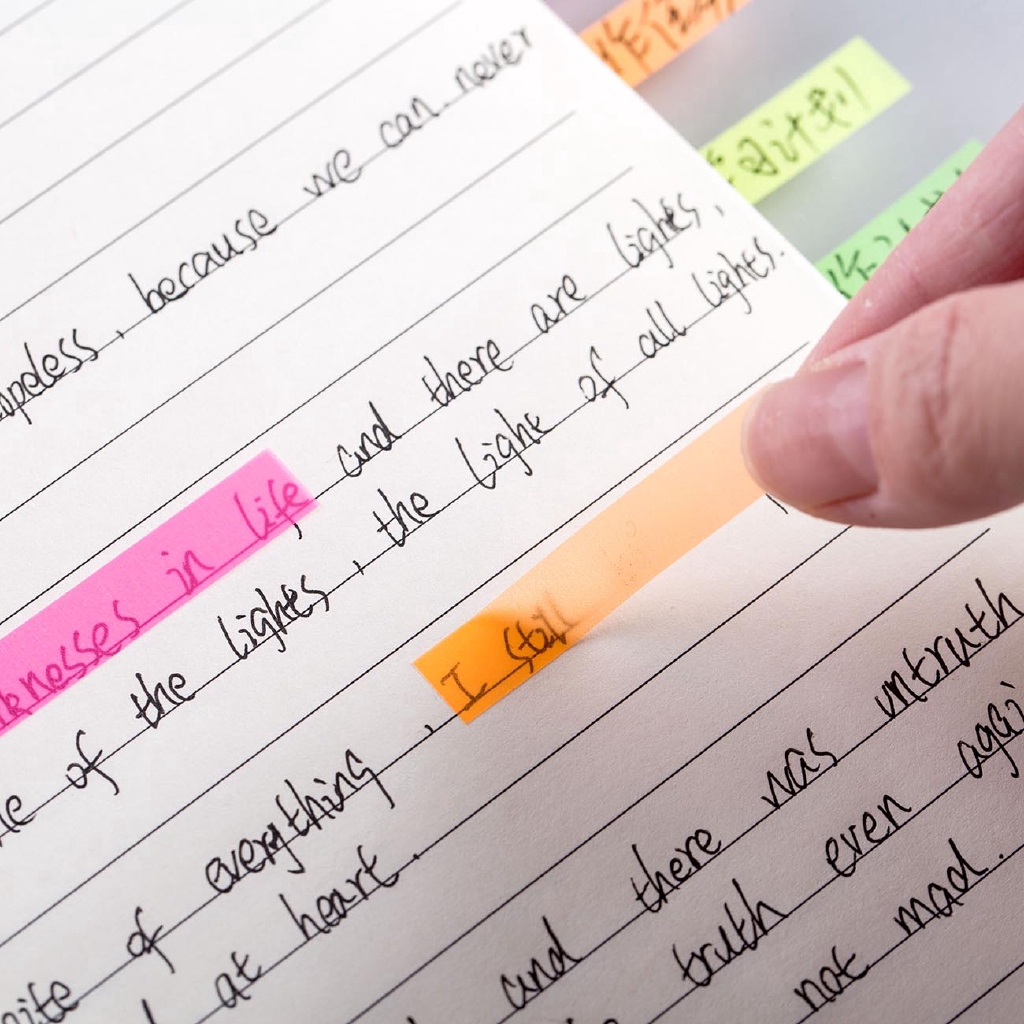 日计划
opeless, because we can never
knesses in life and there are lights,
of the lights, the light of all lights.
of everything, I still
at heart.
and there was untruth
truth even agai
not mad.